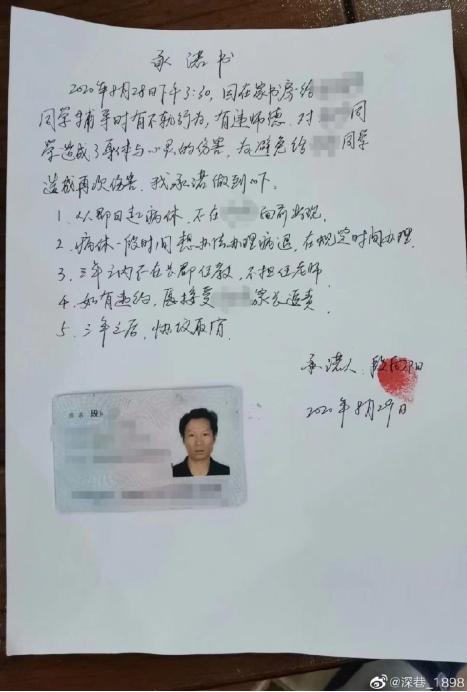 承诺书
2020年8月28日下午3:30, 因在家书房给
同学辅导时有不轨行为, 有违师德. 对 同
学造成了身体与心灵的伤害, 为避免给 同学
造成再次伤害, 我承诺做到如下.
1. 从即日起病休, 不在 面前出现.
2. 病休一段时间想办法办理病退, 在规定时间办理.
3. 三年之内不在长郡任教, 不担任老师
4. 如有违约, 愿接受 家长追责.
5. 三年之后, 协议取消.
承诺人: 段 阳
2020年8月29日
姓名 段
@深巷_1898